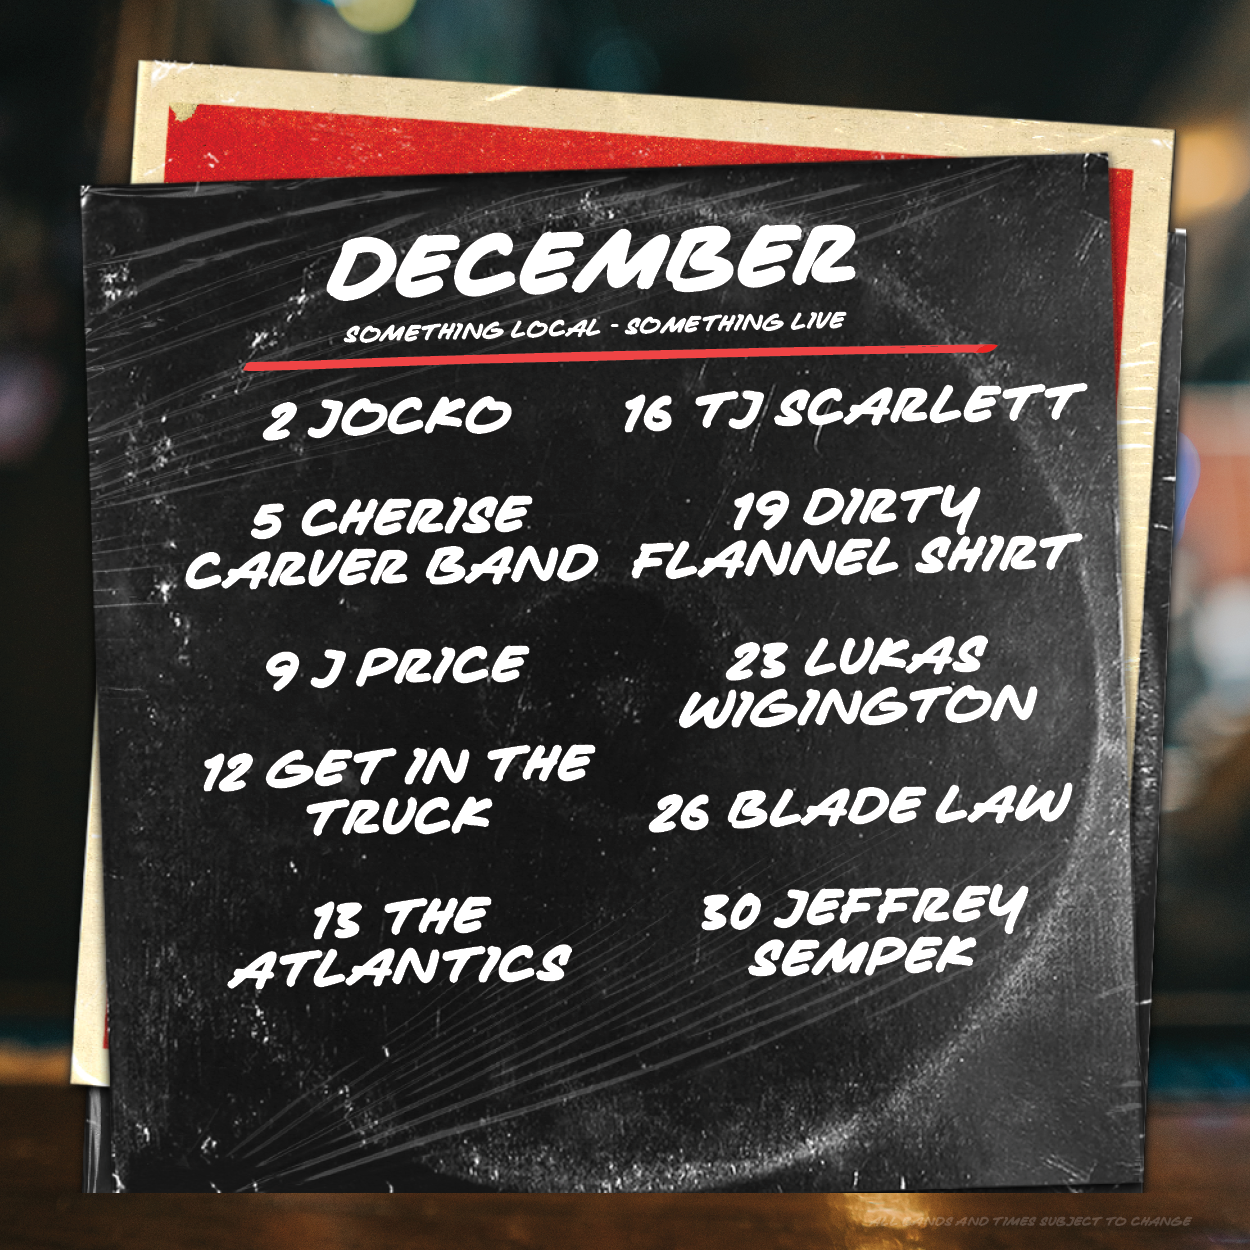 DECEMBER
SOMETHING LOCAL - SOMETHING LIVE
2 JOCKO
5 CHERISE
CARVER BAND
9 J PRICE
12 GET IN THE
TRUCK
13 THE
ATLANTICS
16 TJ SCARLETT
19 DIRTY
FLANNEL SHIRT
23 LUKAS
WIGINGTON
26 BLADE LAW
30 JEFFREY
SEMPEK
ALL BANDS AND TIMES SUBJECT TO CHANGE